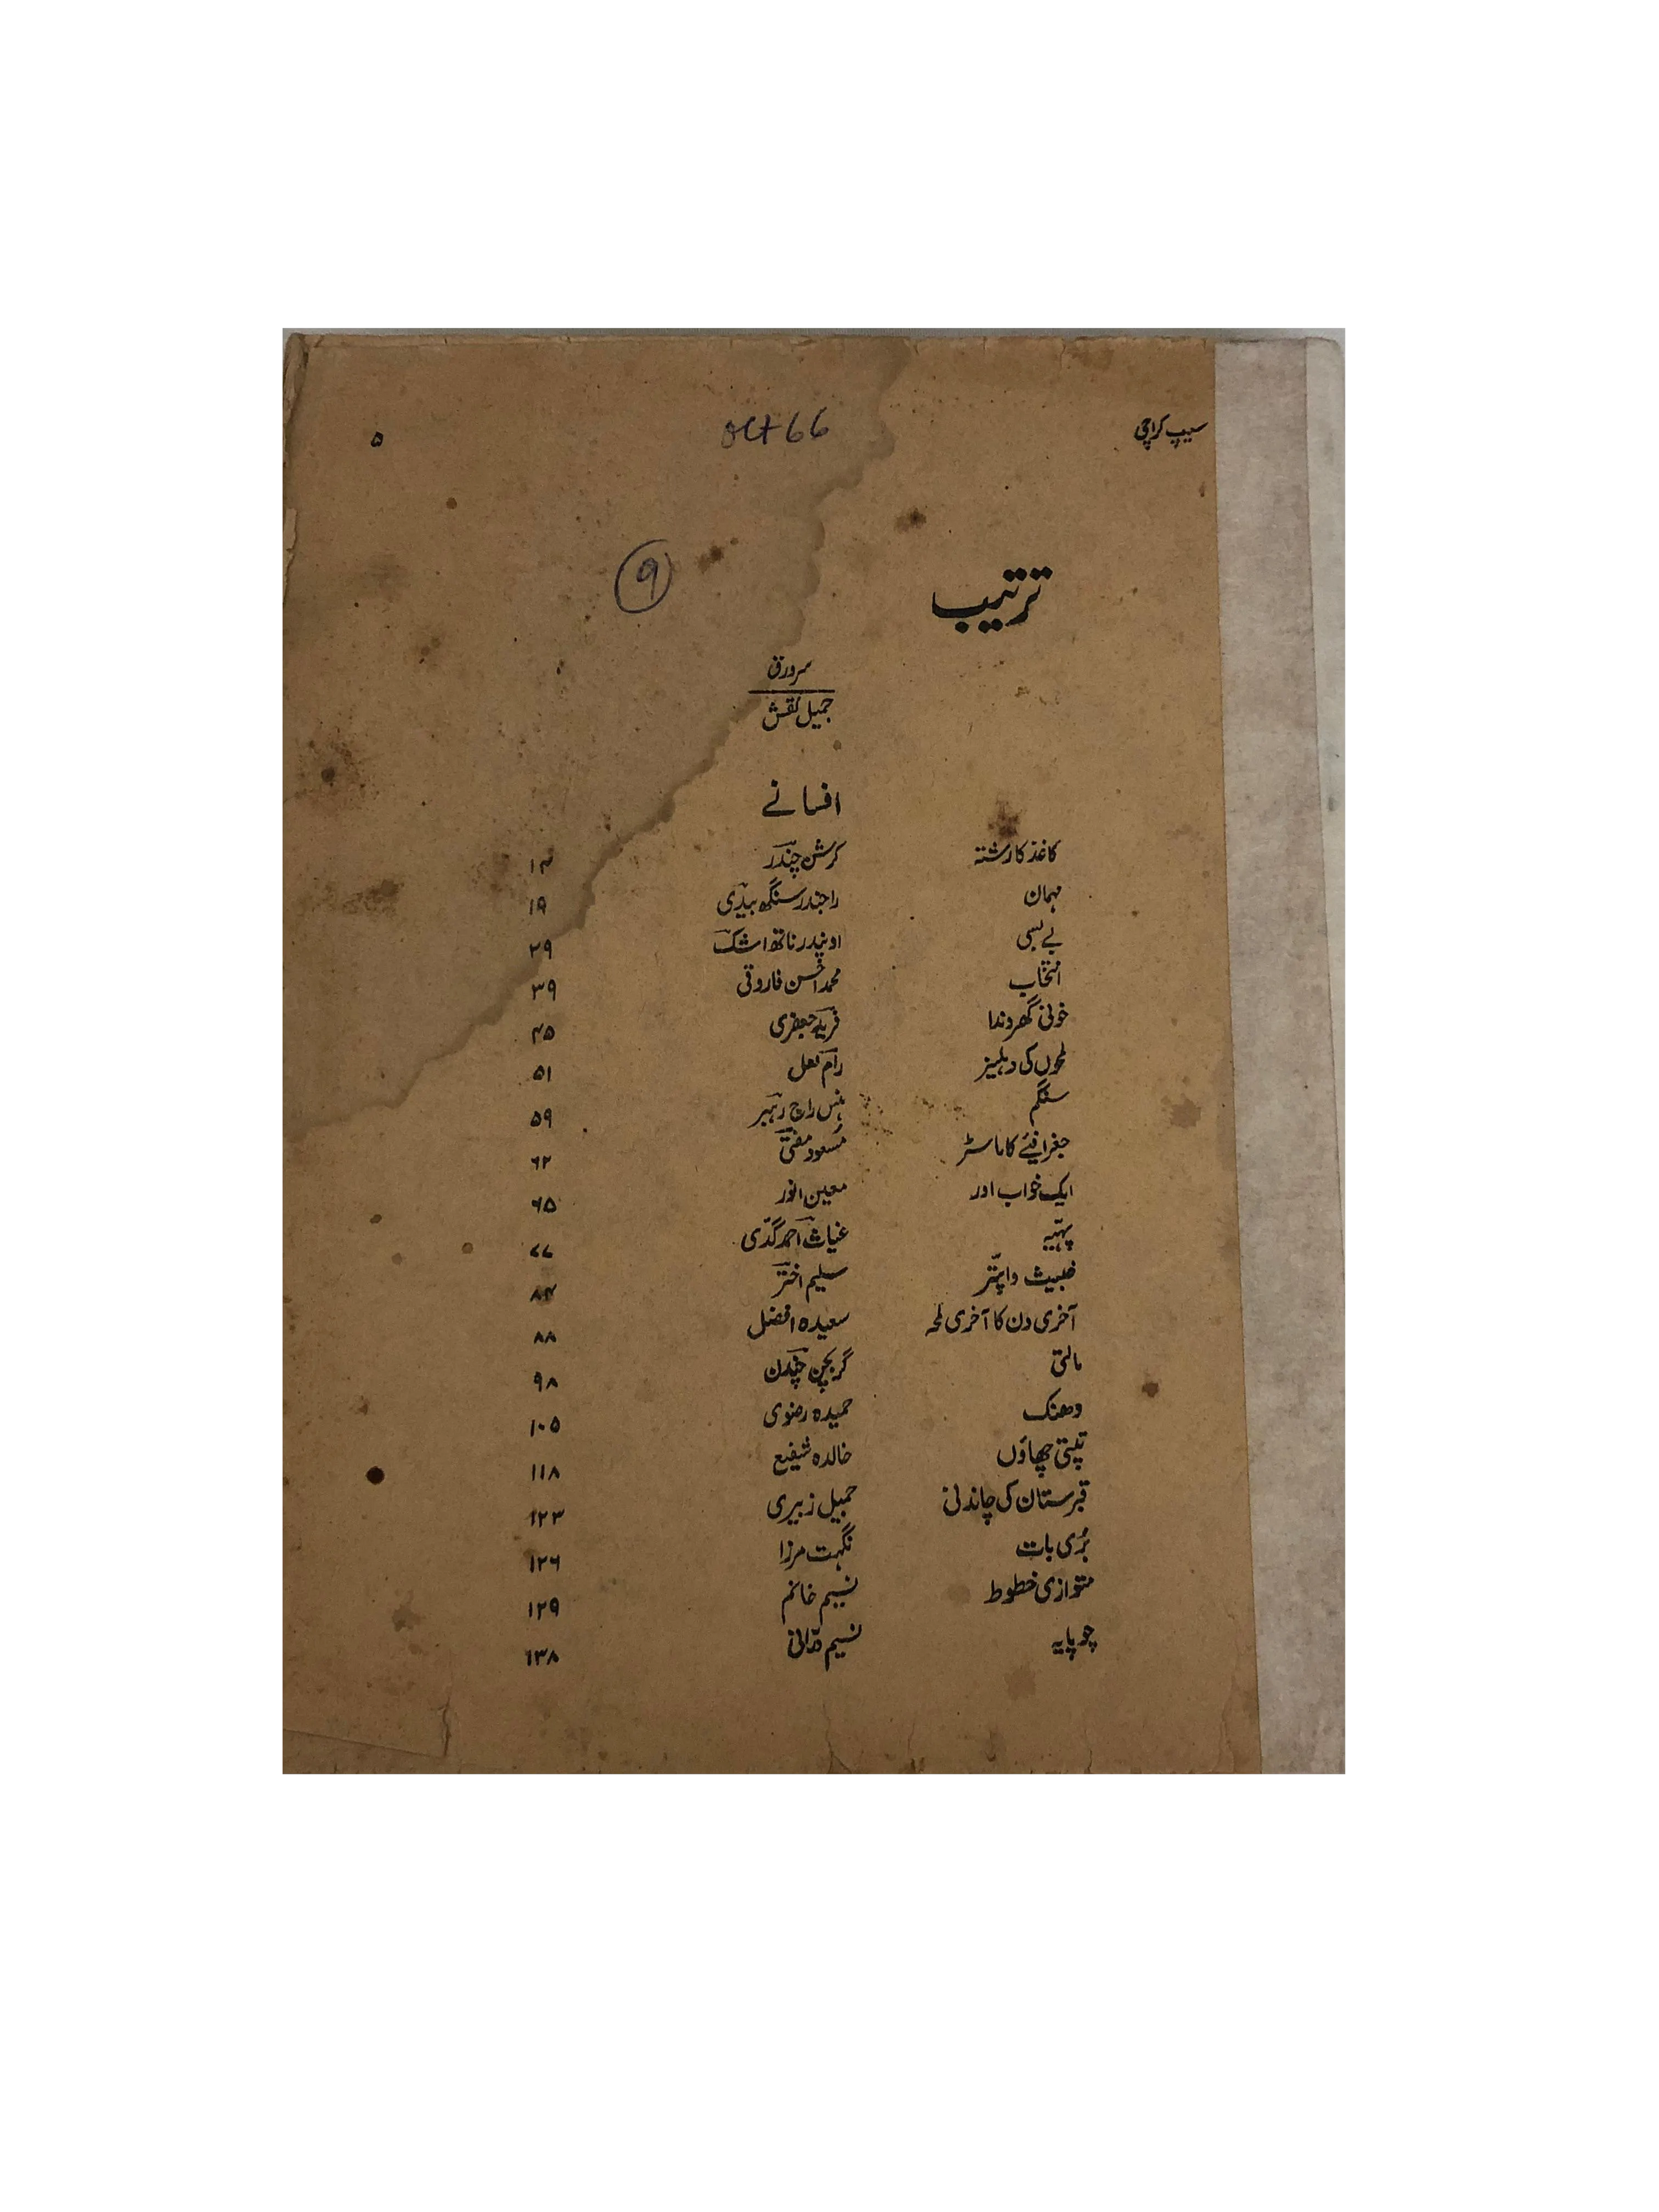 سیپ کراچی oct 66 ۵
۹
ترتیب
سرورق
جمیل نقش
افسانے
کاغذ کا رشتہ کرشن چندر ۱۴
مہمان راجندر سنگھ بیدی ۱۹
بے بسی اوپندر ناتھ اشک ۲۹
انتخاب محمد احسن فاروقی ۳۹
خونی گھروندا فرید جعفری ۴۵
لمحوں کی دہلیز رام لعل ۵۱
سنگم ہنس راج رہبر ۵۹
جغرافیئے کا ماسٹر مسعود مفتی ۶۲
ایک خواب اور معین انور ۶۵
پہیّہ غیاث احمد گدّی ۷۷
خبیث دا پتّر سلیم اختر ۸۴
آخری دن کا آخری لمحہ سعیدہ افضل ۸۸
مالتی گربچن چندن ۹۸
دھنک حمیدہ رضوی ۱۰۵
تپتی چھاؤں خالدہ شفیع ۱۱۸
قبرستان کی چاندنی جمیل زبیری ۱۲۳
بُری بات نگہت مرزا ۱۲۶
متوازی خطوط نسیم خانم ۱۲۹
چوپایہ نسیم درّانی ۱۳۸